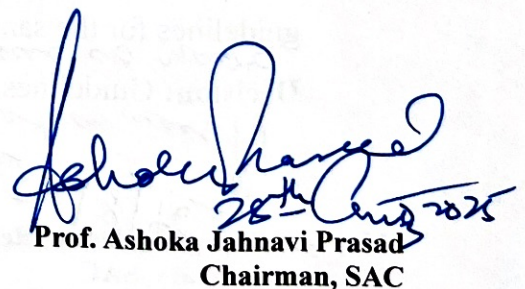 Ashoka Prasad
28th Aug 2025
Prof. Ashoka Jahnavi Prasad
Chairman, SAC